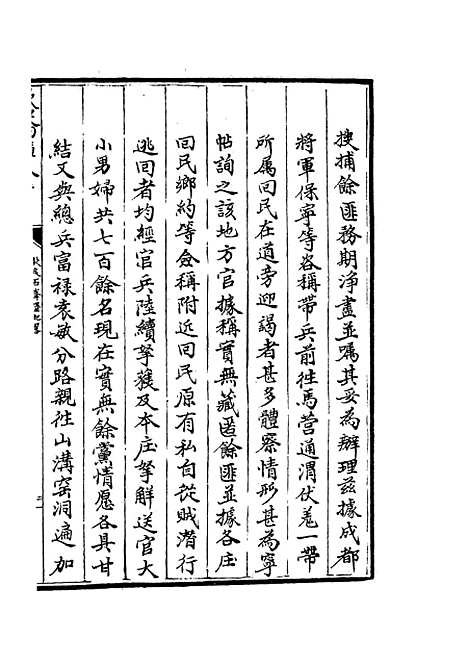 搜捕餘匪務期淨盡並囑其妥為辦理茲據成都
將軍保寧等咨稱帶兵前徃馬營通渭伏羗一帶
所属回民在道旁迎謁者甚多體察情形甚為寧
帖詢之該地方官據稱實無藏匿餘匪並據各庄
回民鄉約等僉稱附近回民原有私自從賊潛行
逃回者均經官兵陸續拏獲及本庄拏觧送官大
小男婦共七百餘名現在實無餘黨情愿各具甘
結又與總兵富禄袁敏分路親徃山溝窑洞遍加
欽定石峯堡紀畧